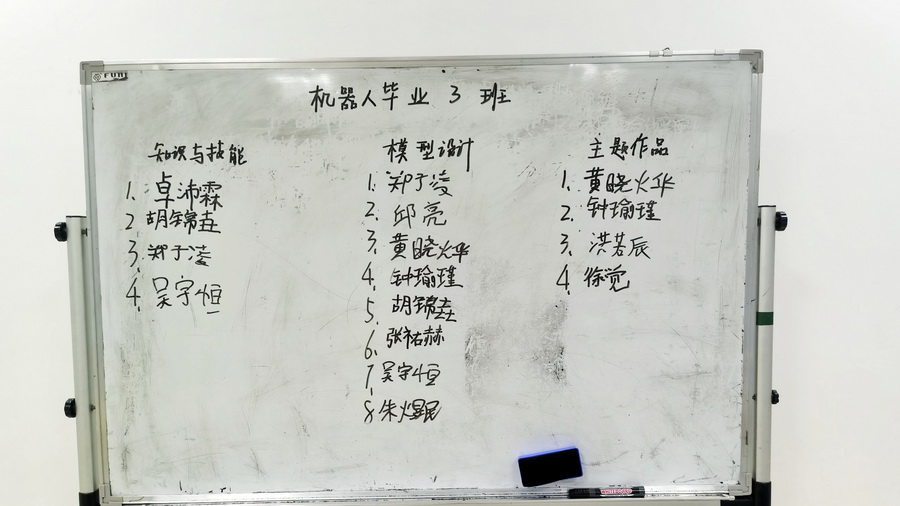 机器人毕业 3 班
知识与技能
1. 卓沛霖
2 胡锦垚
3. 郑于凌
4. 吴宇恒
模型设计
1. 郑于凌
2. 邱亮
3. 黄晓烨
4. 钟瑜瑾
5. 胡锦垚
6. 张祐赫
7 吴宇恒
8 朱焜
主题作品
1. 黄晓烨
2. 钟瑜瑾
3. 洪若辰
4. 徐觉